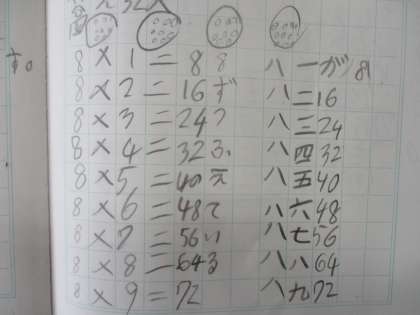 8×1=8 8 八一が8
8×2=16ず 八二16
8×3=24つ 八三24
8×4=32ふ 八四32
8×5=40え 八五40
8×6=48て 八六48
8×7=56い 八七56
8×8=64る 八八64
8×9=72 八九72